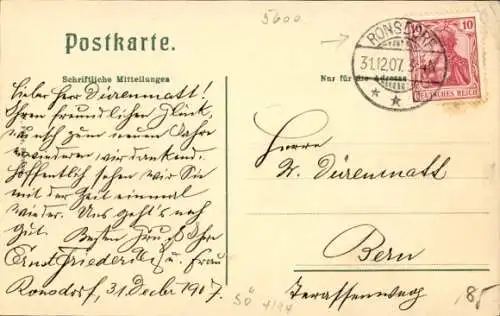 5600
Postkarte.
RONSDORF
31.12.07.
10
DEUTSCHES REICH
Schriftliche Mitteilungen
Nur für die Adresse
Lieber Herr Dürenmatt!
Ihren freundlichen Glück,
wunsch zum neuen Jahre
erwiedern wir dankend.
Hoffentlich sehen wir Sie
mit der Zeit einmal
wieder. Uns geht's noch
gut. Besten Gruß Ihre
Ernst Friederichs u. Frau
Ronsdorf, 31. Decbr 1907.
Herrn
Dürenmatt
Bern
Terassenweg